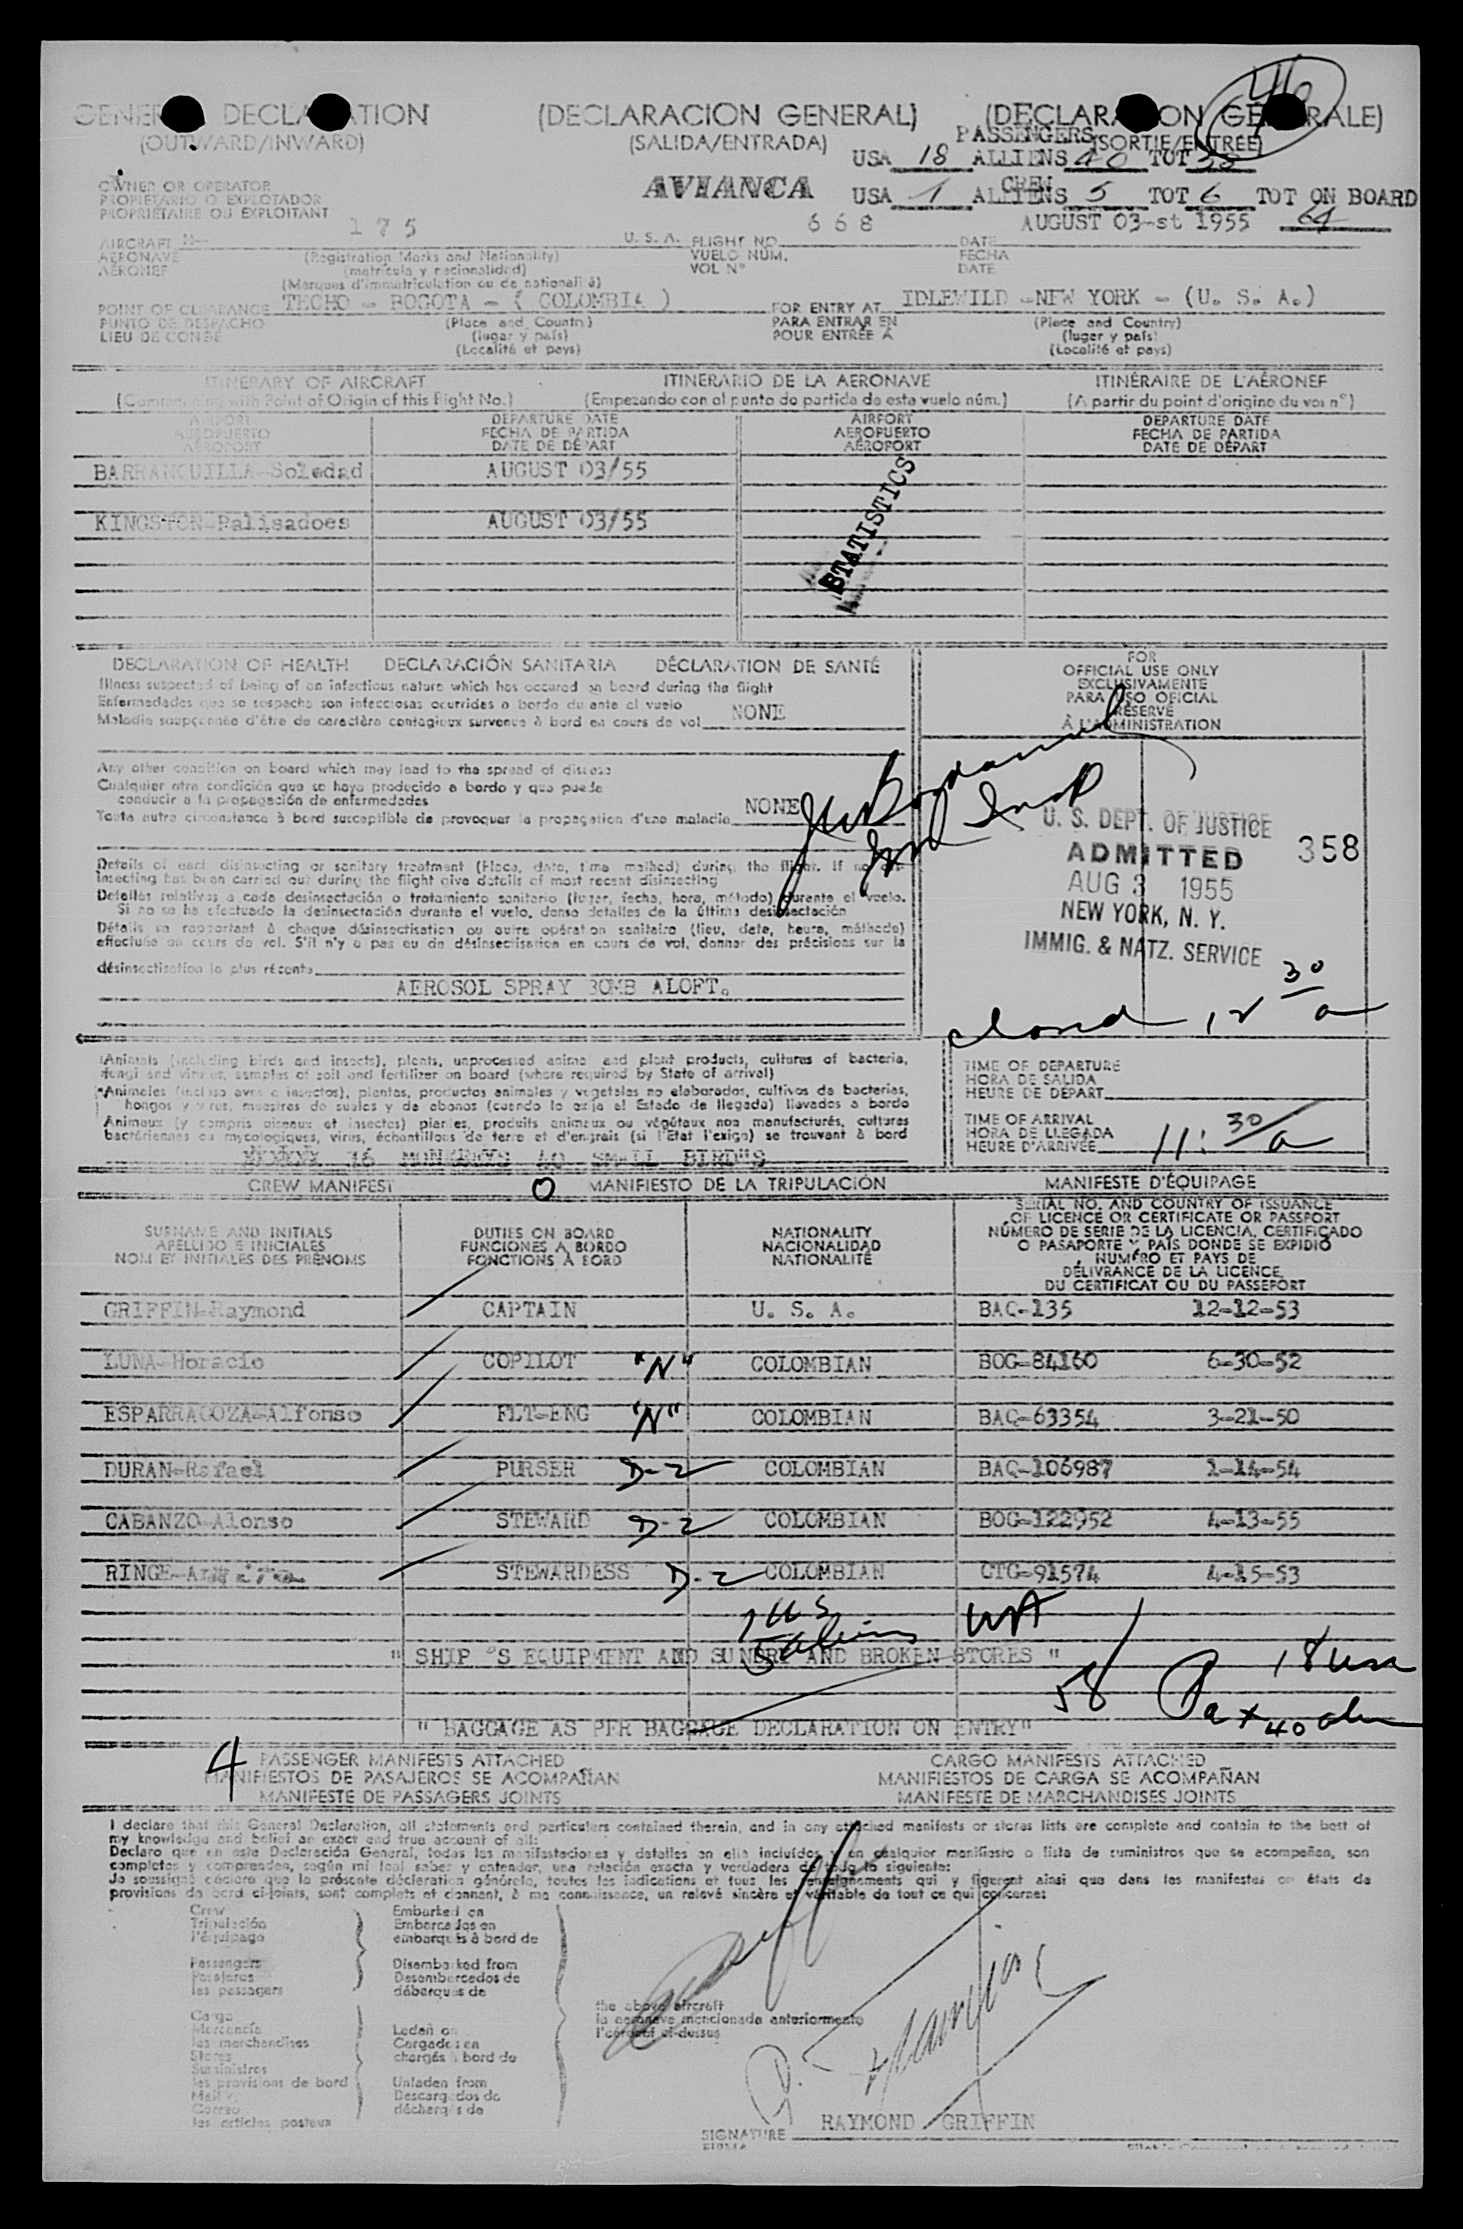 46
GENERAL DECLARATION (DECLARACION GENERAL) (DECLARATION GENERALE)
(OUTWARD/INWARD) (SALIDA/ENTRADA) (SORTIE/ENTRÉE)
PASSENGERS
USA 18 ALLIENS 40 TOT 58
CREW
AVIANCA USA 1 ALLIENS 5 TOT 6 TOT ON BOARD 64
OWNER OR OPERATOR
PROPIETARIO O EXPLOTADOR
PROPRIETAIRE OU EXPLOITANT
AIRCRAFT N- 175 U. S. A. FLIGHT NO. 668 DATE AUGUST 03-st 1955
AERONAVE (Registration Marks and Nationality) VUELO NÚM. FECHA
AÉRONEF (matrícula y nacionalidad) VOL N° DATE
(Marques d'immatriculation ou de nationalité)
POINT OF CLEARANCE TECHO - BOGOTA - ( COLOMBIA ) FOR ENTRY AT IDLEWILD -NEW YORK - (U. S. A.)
PUNTO DE DESPACHO (Place and Country) PARA ENTRAR EN (Place and Country)
LIEU DE CONGÉ (lugar y país) POUR ENTRÉE À (lugar y país)
(Localité et pays) (Localité et pays)
ITINERARY OF AIRCRAFT ITINERARIO DE LA AERONAVE ITINÉRAIRE DE L'AÉRONEF
(Commencing with Point of Origin of this Flight No.) (Empezando con el punto de partida de este vuelo núm.) (A partir du point d'origine du vol n°)
AIRPORT DEPARTURE DATE AIRPORT DEPARTURE DATE
AEROPUERTO FECHA DE PARTIDA AEROPUERTO FECHA DE PARTIDA
AÉROPORT DATE DE DÉPART AÉROPORT DATE DE DÉPART
BARRANQUILLA-Soledad AUGUST 03/55
KINGSTON-Palisadoes AUGUST 03/55
STATISTICS
DECLARATION OF HEALTH DECLARACIÓN SANITARIA DÉCLARATION DE SANTÉ
Illness suspected of being of an infectious nature which has occured on board during the flight
Enfermedades que se sospecha son infecciosas ocurridas a bordo durante el vuelo
Maladie soupçonnée d'être de caractère contagieux survenue à bord en cours de vol NONE
FOR
OFFICIAL USE ONLY
EXCLUSIVAMENTE
PARA USO OFICIAL
RÉSERVÉ
À L'ADMINISTRATION
Any other condition on board which may lead to the spread of disease
Cualquier otra condición que se haya producido a bordo y que puede
conducir a la propagación de enfermedades
Toute autre circonstance à bord susceptible de provoquer la propagation d'une maladie NONE
U. S. DEPT. OF JUSTICE
ADMITTED 358
AUG 3 1955
NEW YORK, N. Y.
IMMIG. & NATZ. SERVICE
Details of each disinsecting or sanitary treatment (Place, date, time, method) during the flight. If no dis-
insecting has been carried out during the flight give details of most recent disinsecting
Detalles relativos a cada desinsectación o tratamiento sanitario (lugar, fecha, hora, método) durante el vuelo.
Si no se ha efectuado la desinsectación durante el vuelo, dense detalles de la última desinsectación
Détails se rapportant à chaque désinsectisation ou autre opération sanitaire (lieu, date, heure, méthode)
effectuée au cours de vol. S'il n'y a pas eu de désinsectisation en cours de vol, donner des précisions sur la
désinsectisation la plus récente
AEROSOL SPRAY BOMB ALOFT.
closed 12 30 a
Animals (including birds and insects), plants, unprocessed animal and plant products, cultures of bacteria,
fungi and viruses, samples of soil and fertilizer on board (where required by State of arrival)
Animales (incluso aves e insectos), plantas, productos animales y vegetales no elaborados, cultivos de bacterias,
hongos y virus, muestras de suelos y de abonos (cuando lo exija el Estado de llegada) llevados a bordo
Animaux (y compris oiseaux et insectes) plantes, produits animaux ou végétaux non manufacturés, cultures
bactériennes ou mycologiques, virus, échantillons de terre et d'engrais (si l'Etat l'exige) se trouvant à bord
16 MONKEYS 40 SMALL BIRD"S
TIME OF DEPARTURE
HORA DE SALIDA
HEURE DE DÉPART
TIME OF ARRIVAL
HORA DE LLEGADA
HEURE D'ARRIVÉE 11:30 a
CREW MANIFEST O MANIFIESTO DE LA TRIPULACIÓN MANIFESTE D'ÉQUIPAGE
SURNAME AND INITIALS
APELLIDO E INICIALES
NOM ET INITIALES DES PRÉNOMS
DUTIES ON BOARD
FUNCIONES A BORDO
FONCTIONS À BORD
NATIONALITY
NACIONALIDAD
NATIONALITÉ
SERIAL NO. AND COUNTRY OF ISSUANCE
OF LICENCE OR CERTIFICATE OR PASSPORT
NÚMERO DE SERIE DE LA LICENCIA, CERTIFICADO
O PASAPORTE Y PAÍS DONDE SE EXPIDIÓ
NUMÉRO ET PAYS DE
DÉLIVRANCE DE LA LICENCE,
DU CERTIFICAT OU DU PASSEPORT
GRIFFIN-Raymond CAPTAIN U. S. A. BAQ-135 12-12-53
LUNA-Horacio COPILOT "N" COLOMBIAN BOG-84160 6-30-52
ESPARRAGOZA-Alfonso FLT-ENG "N" COLOMBIAN BAQ-63354 3-21-50
DURAN-Rafael PURSER D-2 COLOMBIAN BAQ-106987 1-14-54
CABANZO-Alonso STEWARD D-2 COLOMBIAN BOG-122952 4-13-55
RINGE- STEWARDESS D-2 COLOMBIAN CTG-91574 4-15-53
1 US
5 aliens
" SHIP "S EQUIPMENT AND SUNDRY AND BROKEN STORES "
58 Pax 18 usa
40 alien
" BAGGAGE AS PER BAGGAGE DECLARATION ON ENTRY"
4 PASSENGER MANIFESTS ATTACHED CARGO MANIFESTS ATTACHED
MANIFIESTOS DE PASAJEROS SE ACOMPAÑAN MANIFIESTOS DE CARGA SE ACOMPAÑAN
MANIFESTE DE PASSAGERS JOINTS MANIFESTE DE MARCHANDISES JOINTS
I declare that this General Declaration, all statements and particulars contained therein, and in any attached manifests or stores lists are complete and contain to the best of
my knowledge and belief an exact and true account of all:
Declaro que en esta Declaración General, todas las manifestaciones y detalles en ella incluidos y en cualquier manifiesto o lista de suministros que se acompañan, son
completos y comprenden, según mi leal saber y entender, una relación exacta y verdadera de todo lo siguiente:
Je soussigné déclare que la présente déclaration générale, toutes les indications et tous les renseignements qui y figurent ainsi que dans les manifestes ou états de
provisions de bord ci-joints, sont complets et donnent, à ma connaissance, un relevé sincère et véritable de tout ce qui concerne:
Crew Embarked on
Tripulación Embarcados en
l'équipage embarqués à bord de
Passengers Disembarked from
Pasajeros Desembarcados de
les passagers débarqués de
the above aircraft
la aeronave mencionada anteriormente
l'aéronef ci-dessus
Cargo
Mercancía Laden on
les marchandises Cargados en
Stores chargés à bord de
Suministros
les provisions de bord Unladen from
Mail Descargados de
Correo déchargés de
les articles postaux
RAYMOND GRIFFIN
SIGNATURE
FIRMA